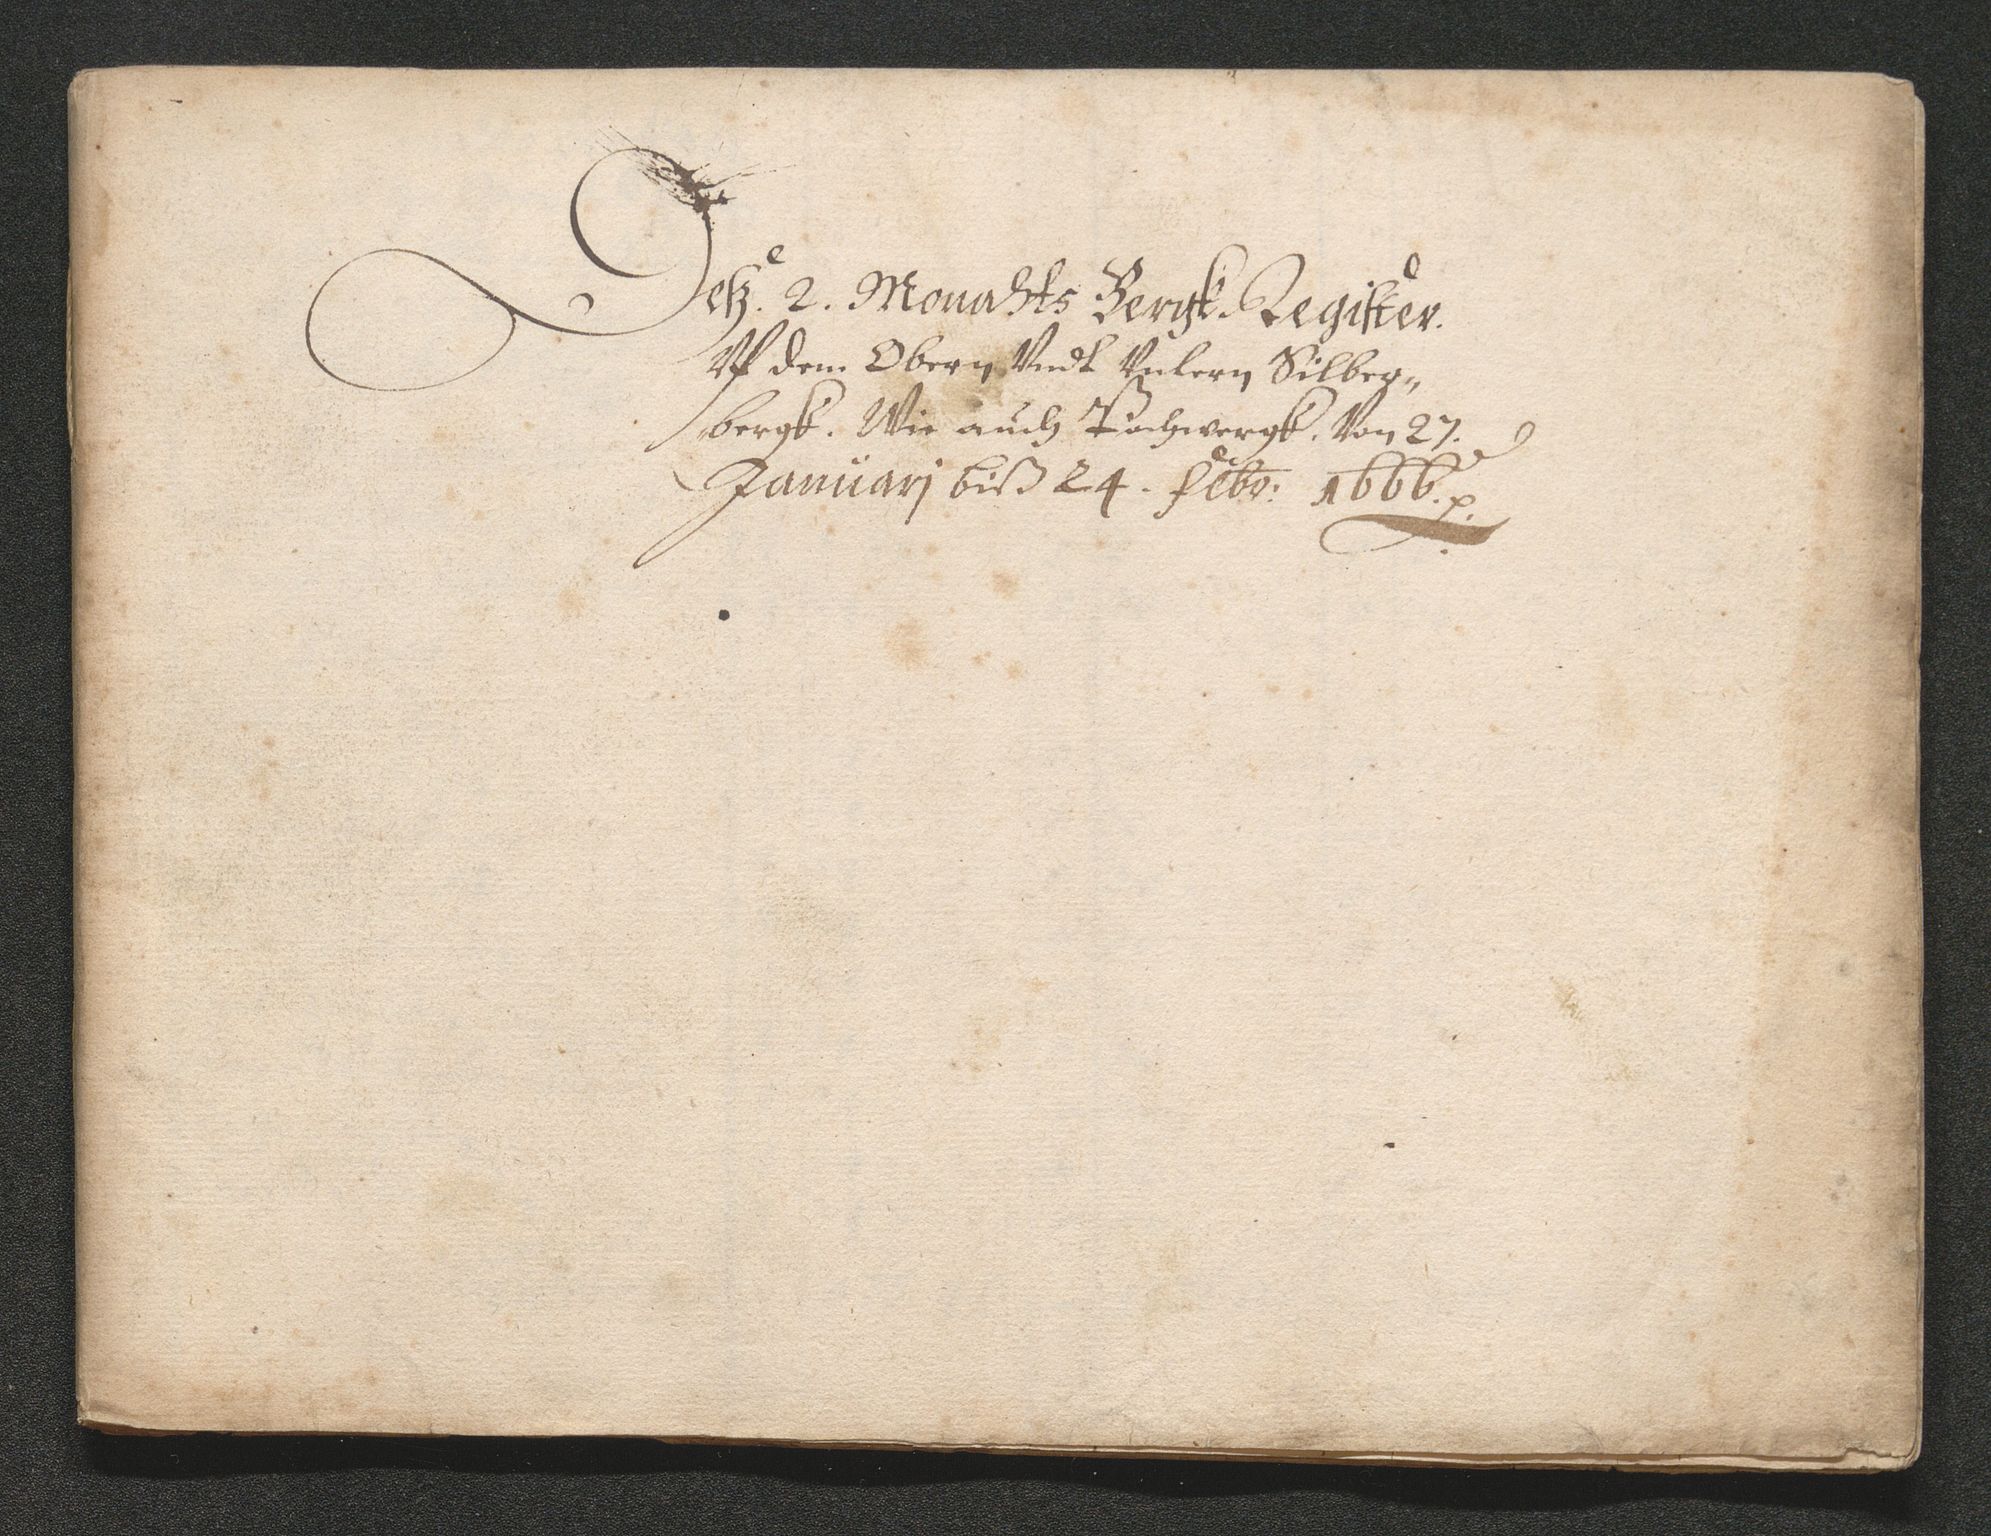 Deß. 2. Monahts Bergk. Register.
Vf dem Obern Vndt Vntern Silber„
bergk. Wie auch Puchwergk. Von 27.
Januarj biß 24. Febr: 1666. p.